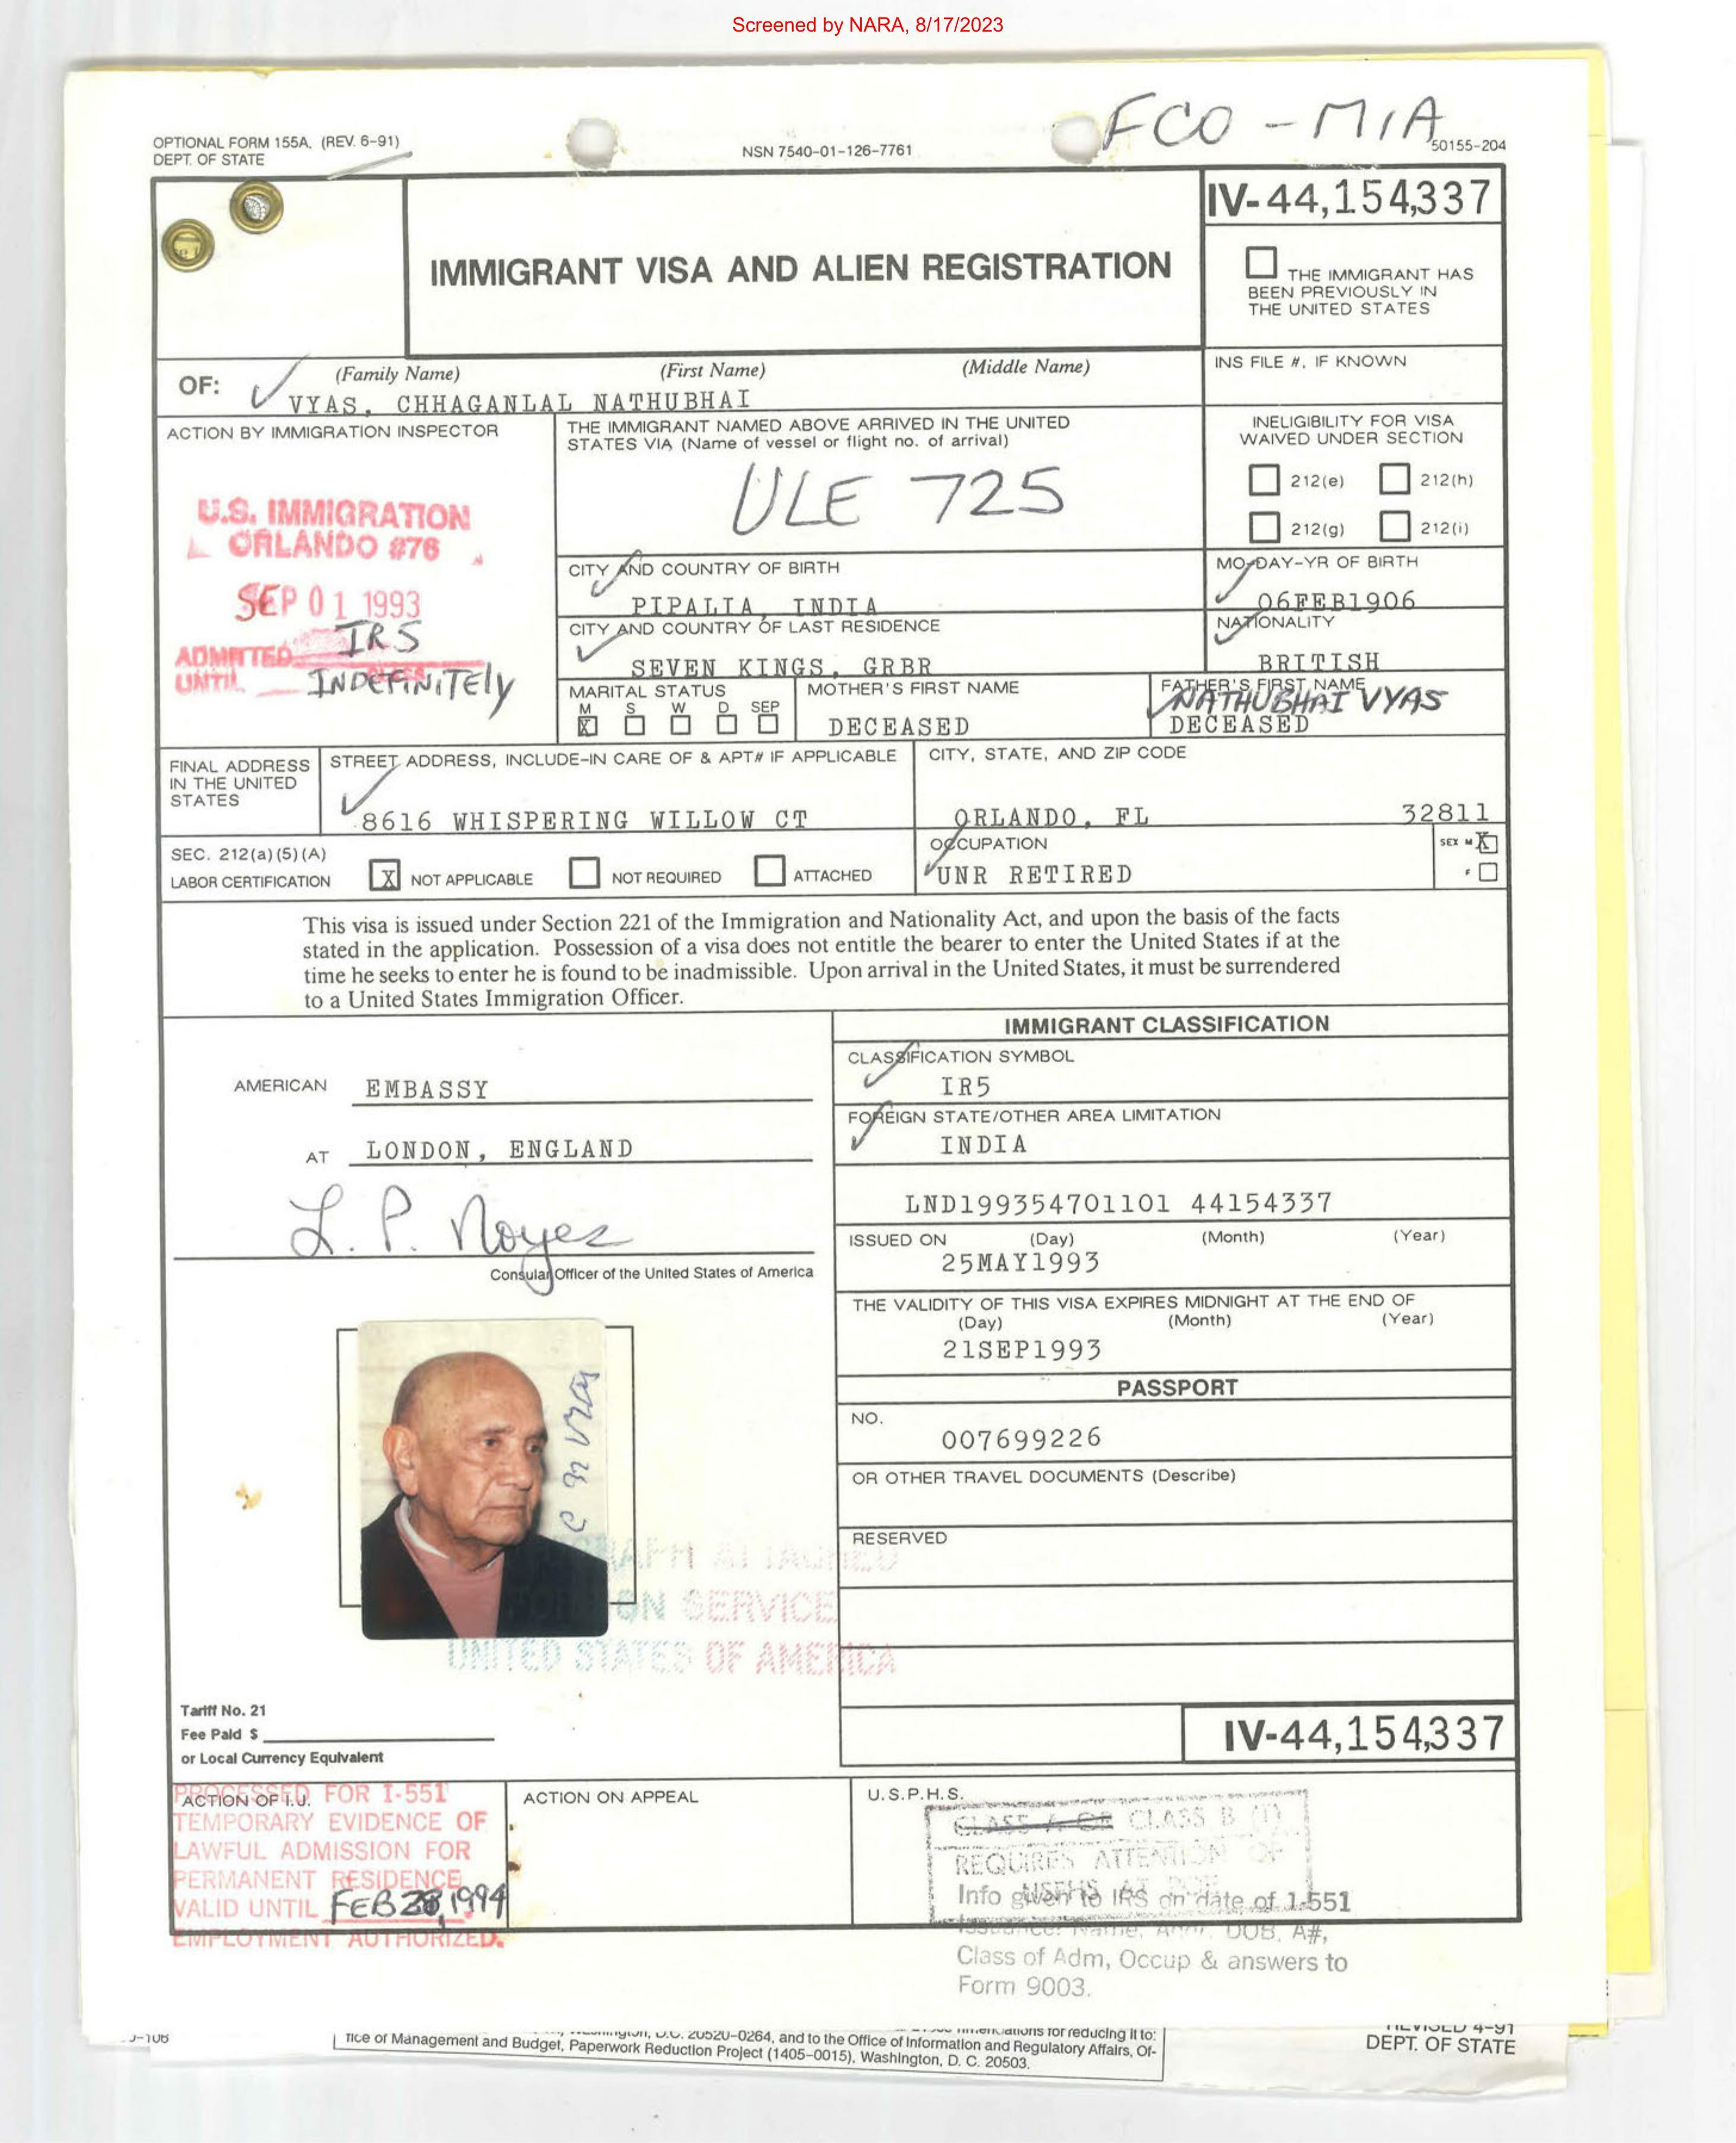 Screened by NARA, 8/17/2023
FCO - MIA
OPTIONAL FORM 155A, (REV. 6-91)
DEPT. OF STATE
NSN 7540-01-126-7761
50155-204
IV-44,154,337
IMMIGRANT VISA AND ALIEN REGISTRATION
THE IMMIGRANT HAS
BEEN PREVIOUSLY IN
THE UNITED STATES
OF:
(Family Name) (First Name) (Middle Name)
VYAS, CHHAGANLAL NATHUBHAI
INS FILE #, IF KNOWN
ACTION BY IMMIGRATION INSPECTOR
U.S. IMMIGRATION
ORLANDO #76
SEP 01 1993
ADMITTED IR5
UNTIL INDEFINITELY
THE IMMIGRANT NAMED ABOVE ARRIVED IN THE UNITED
STATES VIA (Name of vessel or flight no. of arrival)
ULE 725
INELIGIBILITY FOR VISA
WAIVED UNDER SECTION
212(e) 212(h)
212(g) 212(i)
CITY AND COUNTRY OF BIRTH
PIPALIA, INDIA
MO-DAY-YR OF BIRTH
06FEB1906
CITY AND COUNTRY OF LAST RESIDENCE
SEVEN KINGS, GRBR
NATIONALITY
BRITISH
MARITAL STATUS
M S W D SEP
X
MOTHER'S FIRST NAME
DECEASED
FATHER'S FIRST NAME
NATHUBHAI VYAS
DECEASED
FINAL ADDRESS
IN THE UNITED
STATES
STREET ADDRESS, INCLUDE-IN CARE OF & APT# IF APPLICABLE
8616 WHISPERING WILLOW CT
CITY, STATE, AND ZIP CODE
ORLANDO, FL 32811
SEC. 212(a)(5)(A)
LABOR CERTIFICATION
X NOT APPLICABLE NOT REQUIRED ATTACHED
OCCUPATION
UNR RETIRED
SEX M X
F
This visa is issued under Section 221 of the Immigration and Nationality Act, and upon the basis of the facts
stated in the application. Possession of a visa does not entitle the bearer to enter the United States if at the
time he seeks to enter he is found to be inadmissible. Upon arrival in the United States, it must be surrendered
to a United States Immigration Officer.
AMERICAN EMBASSY
AT LONDON, ENGLAND
L. P. Noyes
Consular Officer of the United States of America
IMMIGRANT CLASSIFICATION
CLASSIFICATION SYMBOL
IR5
FOREIGN STATE/OTHER AREA LIMITATION
INDIA
LND199354701101 44154337
ISSUED ON (Day) (Month) (Year)
25MAY1993
THE VALIDITY OF THIS VISA EXPIRES MIDNIGHT AT THE END OF
(Day) (Month) (Year)
21SEP1993
PASSPORT
NO.
007699226
OR OTHER TRAVEL DOCUMENTS (Describe)
RESERVED
ATTACHED
SERVICE
UNITED STATES OF AMERICA
Tariff No. 21
Fee Paid $
or Local Currency Equivalent
IV-44,154,337
ACTION OF I.J.
PROCESSED FOR I-551
TEMPORARY EVIDENCE OF
LAWFUL ADMISSION FOR
PERMANENT RESIDENCE
VALID UNTIL FEB 28, 1994
EMPLOYMENT AUTHORIZED.
ACTION ON APPEAL
U.S.P.H.S.
CLASS A OR CLASS B (1)
REQUIRES ATTENTION OF
USPHS AT
Info given to IRS on date of I-551
Issuance: Name, Addr, DOB, A#,
Class of Adm, Occup & answers to
Form 9003.
D.C. 20520-0264, and to the Office of Information and Regulatory Affairs, Of-
fice of Management and Budget, Paperwork Reduction Project (1405-0015), Washington, D. C. 20503.
REVISED 4-91
DEPT. OF STATE